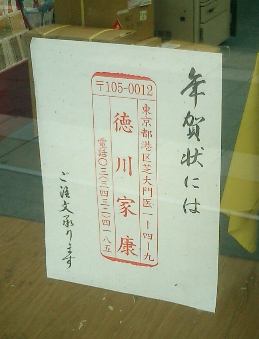 年賀状には
〒105-0012
東京都港区芝大門匠一ー四ー九
徳川家康
電話〇三ー三四三二ー四一八五
ご注文承ります